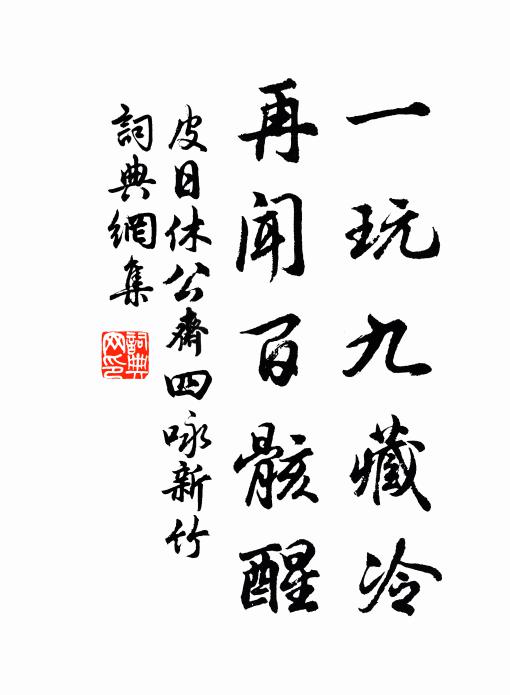 一玩九藏冷
再聞百骸醒
皮日休公齋四咏新竹
詞典網集
詞典網印